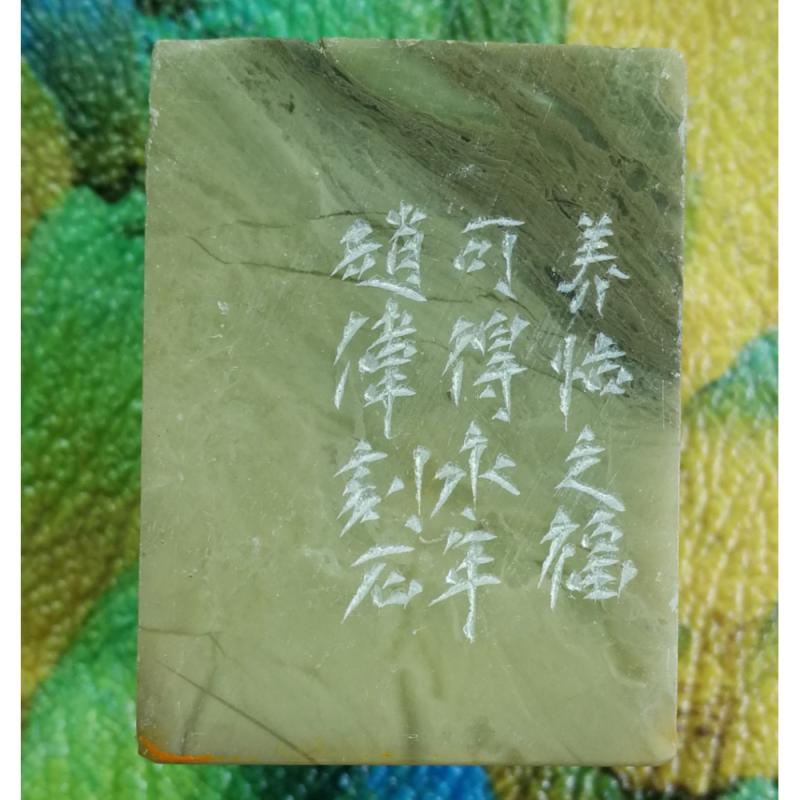 养怡之福
可得永年
趙偉刻石